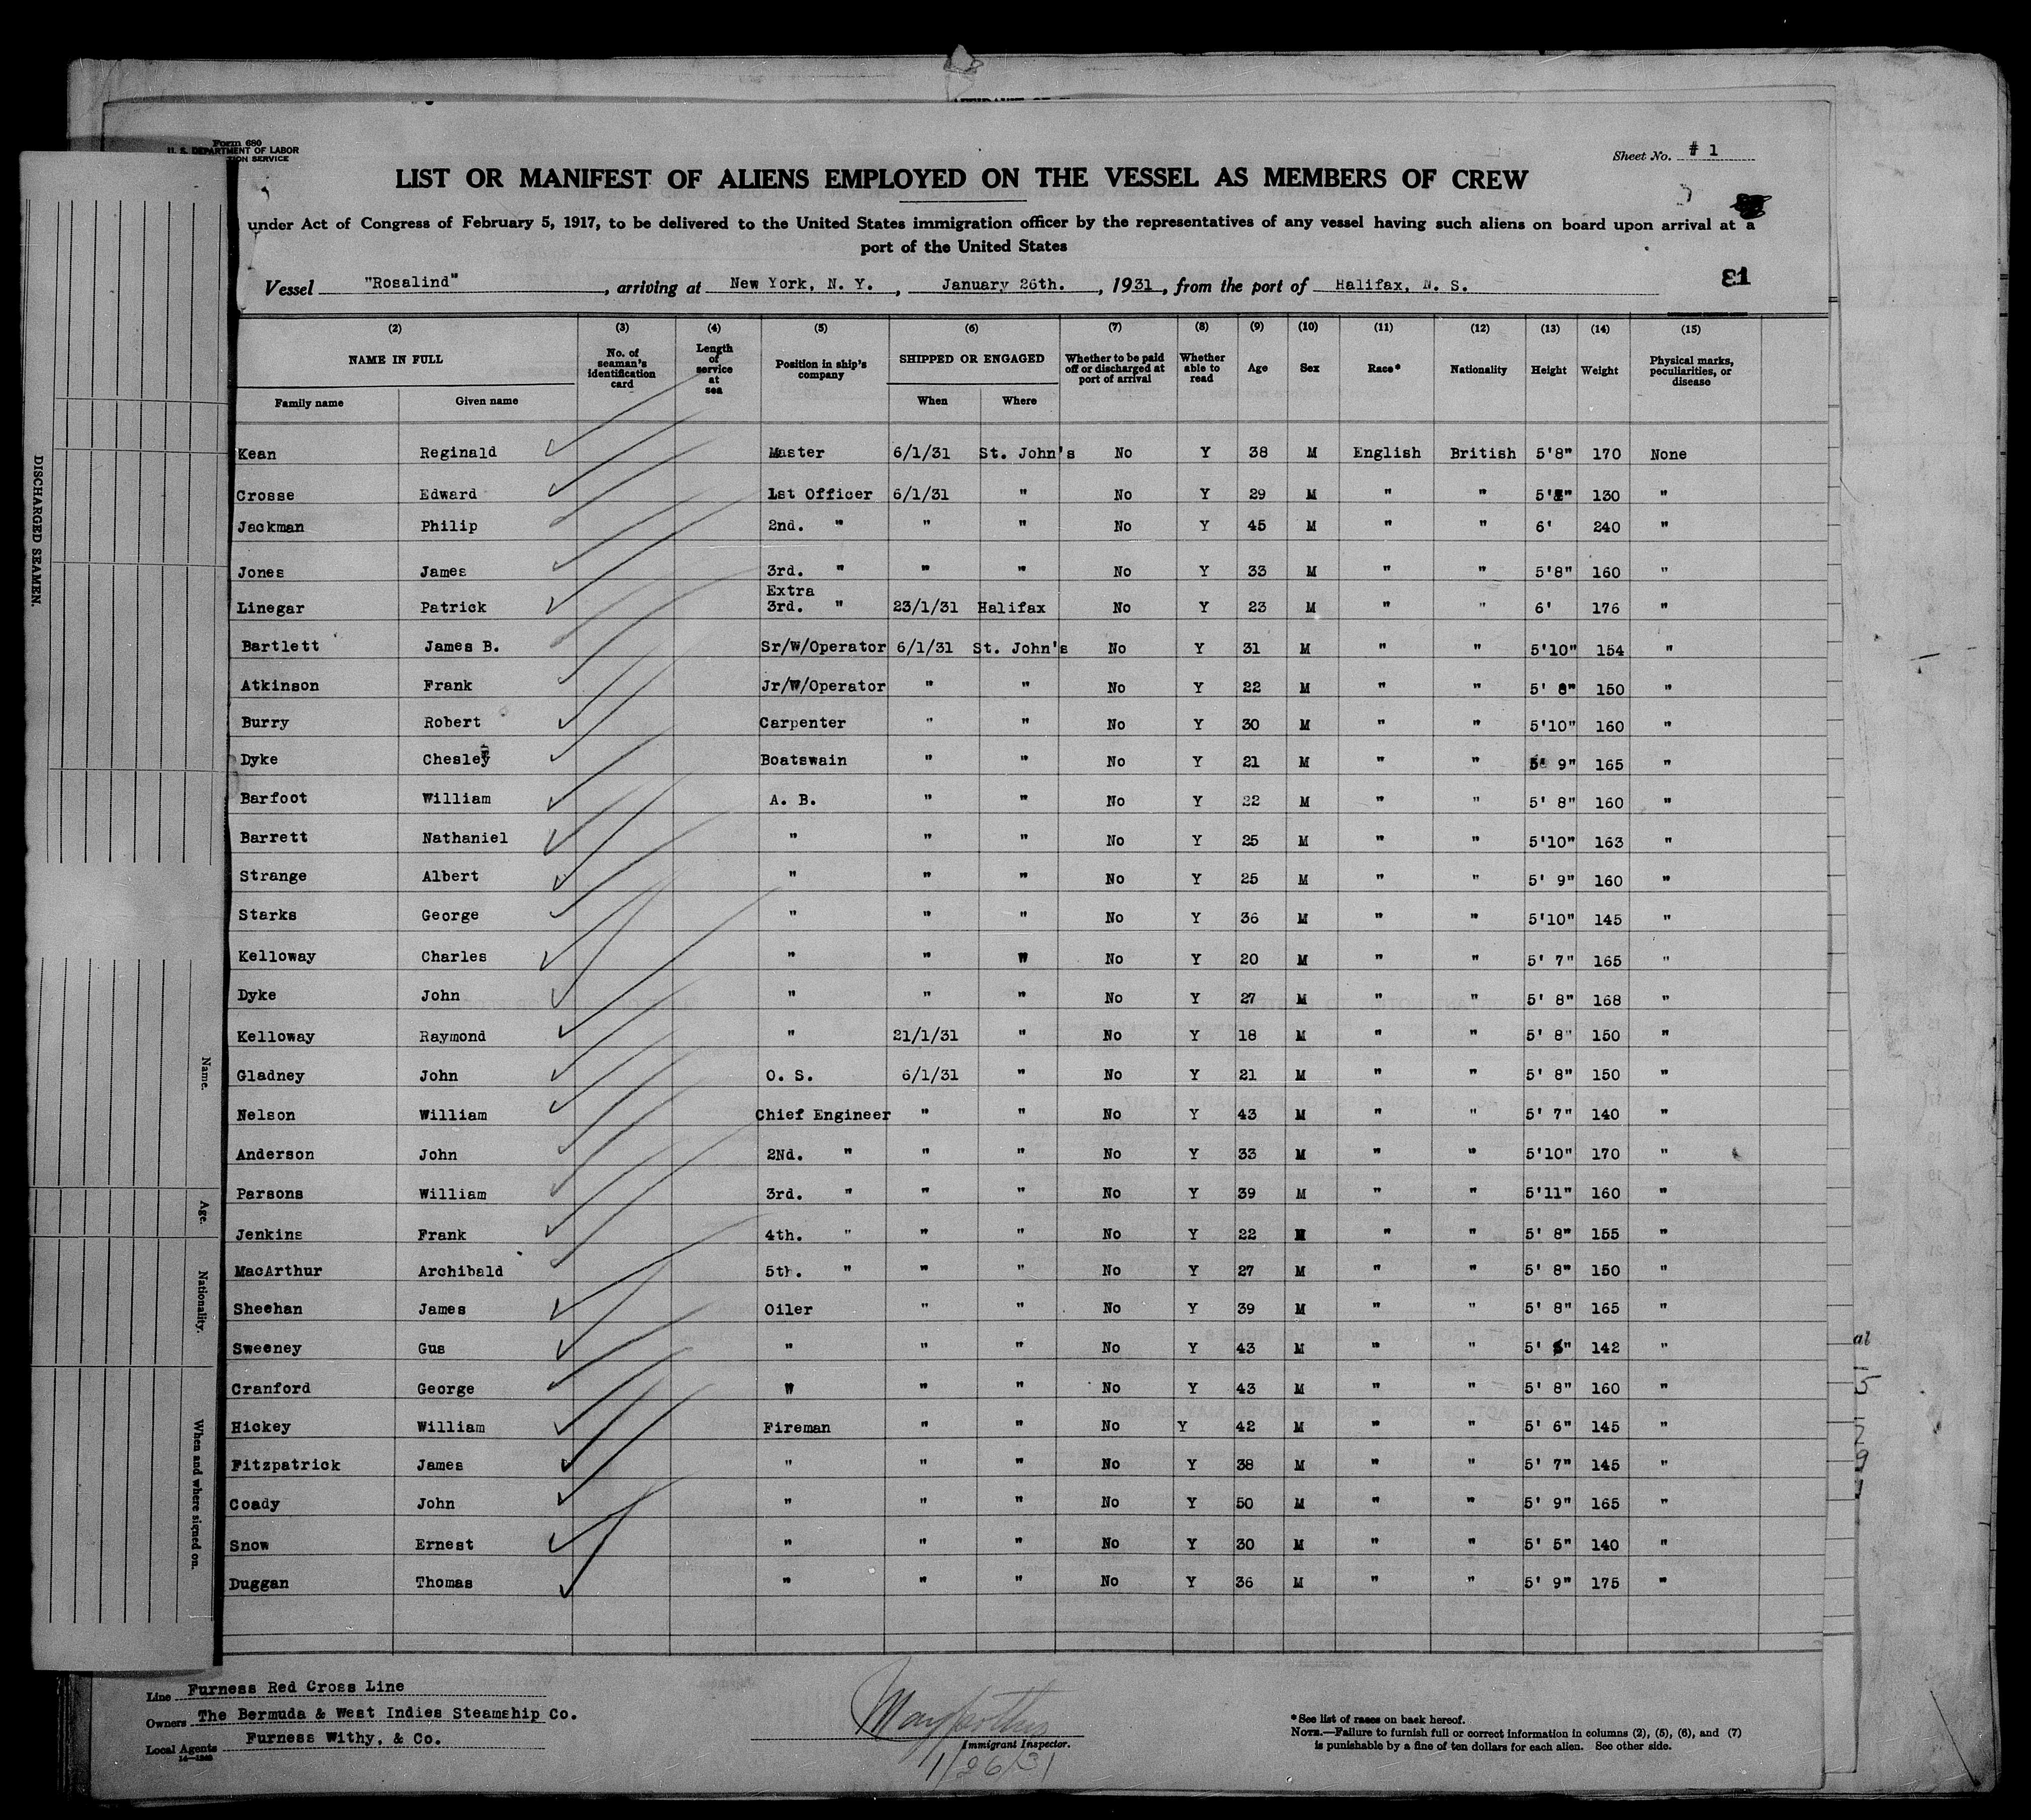 Form 680
U. S. DEPARTMENT OF LABOR
TION SERVICE
Sheet No. # 1
LIST OR MANIFEST OF ALIENS EMPLOYED ON THE VESSEL AS MEMBERS OF CREW
under Act of Congress of February 5, 1917, to be delivered to the United States immigration officer by the representatives of any vessel having such aliens on board upon arrival at a
port of the United States
Vessel "Rosalind", arriving at New York, N. Y., January 26th., 1931, from the port of Halifax, N. S.
(2) (3) (4) (5) (6) (7) (8) (9) (10) (11) (12) (13) (14) (15)
NAME IN FULL No. of seaman's identification card Length of service at sea Position in ship's company SHIPPED OR ENGAGED Whether to be paid off or discharged at port of arrival Whether able to read Age Sex Race* Nationality Height Weight Physical marks, peculiarities, or disease
Family name Given name When Where
Kean Reginald Master 6/1/31 St. John's No Y 38 M English British 5'8" 170 None
Crosse Edward 1st Officer 6/1/31 " No Y 29 M " " 130 "
Jackman Philip 2nd. " " " No Y 45 M " " 6' 240 "
Jones James 3rd. " " " No Y 33 M " " 5'8" 160 "
Extra
Linegar Patrick 3rd. " 23/1/31 Halifax No Y 23 M " " 6' 176 "
Bartlett James B. Sr/W/Operator 6/1/31 St. John's No Y 31 M " " 5'10" 154 "
Atkinson Frank Jr/W/Operator " " No Y 22 M " " 5' 8" 150 "
Burry Robert Carpenter " " No Y 30 M " " 5'10" 160 "
Dyke Chesley Boatswain " " No Y 21 M " " 5' 9" 165 "
Barfoot William A. B. " " No Y 22 M " " 5' 8" 160 "
Barrett Nathaniel " " " No Y 25 M " " 5'10" 163 "
Strange Albert " " " No Y 25 M " " 5' 9" 160 "
Starks George " " " No Y 36 M " " 5'10" 145 "
Kelloway Charles " " " No Y 20 M " " 5' 7" 165 "
Dyke John " " " No Y 27 M " " 5' 8" 168 "
Kelloway Raymond " 21/1/31 " No Y 18 M " " 5' 8" 150 "
Gladney John O. S. 6/1/31 " No Y 21 M " " 5' 8" 150 "
Nelson William Chief Engineer " " No Y 43 M " " 5' 7" 140 "
Anderson John 2Nd. " " " No Y 33 M " " 5'10" 170 "
Parsons William 3rd. " " " No Y 39 M " " 5'11" 160 "
Jenkins Frank 4th. " " " No Y 22 M " " 5' 8" 155 "
MacArthur Archibald 5th. " " " No Y 27 M " " 5' 8" 150 "
Sheehan James Oiler " " No Y 39 M " " 5' 8" 165 "
Sweeney Gus " " " No Y 43 M " " 5' 142 "
Cranford George " " " No Y 43 M " " 5' 8" 160 "
Hickey William Fireman " " No Y 42 M " " 5' 6" 145 "
Fitzpatrick James " " " No Y 38 M " " 5' 7" 145 "
Coady John " " " No Y 50 M " " 5' 9" 165 "
Snow Ernest " " " No Y 30 M " " 5' 5" 140 "
Duggan Thomas " " " No Y 36 M " " 5' 9" 175 "
Line Furness Red Cross Line
Owners The Bermuda & West Indies Steamship Co.
Local Agents Furness Withy, & Co.
14—1240
Immigrant Inspector.
1/26/31
* See list of races on back hereof.
NOTE.—Failure to furnish full or correct information in columns (2), (5), (6), and (7)
is punishable by a fine of ten dollars for each alien. See other side.
DISCHARGED SEAMEN.
Name.
Age.
Nationality.
When and where signed on.
al